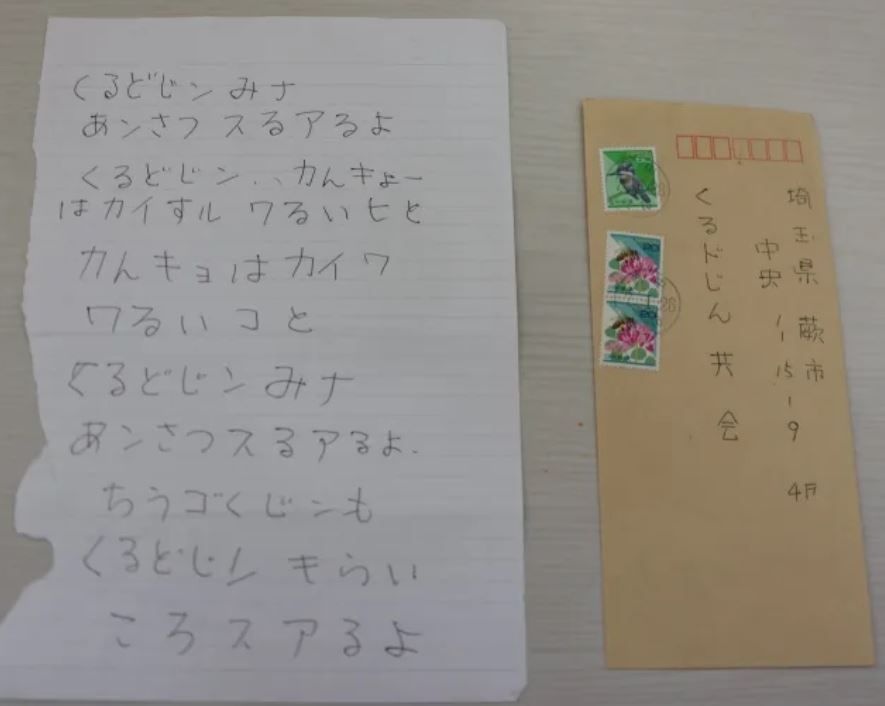 くるどじン みナ
あンさつ スるアるよ
くるどじン 、、カんキョー
はカイすル ワるいヒと
カんキョはカイワ
ワるいコと
くるどじン みナ
あンさつスるアるよ.
ちうゴくじンも
くるどじン キらい
ころスアるよ
埼玉県 蕨市
中央 1-15-9 4F
くるドじん 共 会
20
20